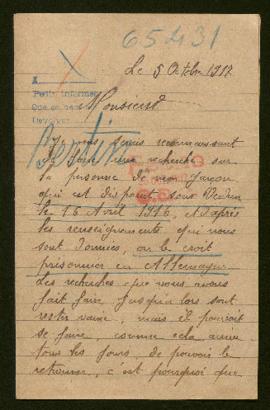 65431
Le 5 Octobre 1917
Monsieur
Je vous serais reconnaissant
de faire une recherche sur
la personne de mon garçon
qui est disparu sous Verdun
le 16 Avril 1916, d'après
les renseignements qui nous
sont donnés, on le croit
prisonnier en Allemagne.
Les recherches que nous avons
fait faire jusqu'à lors sont
resté vaine, mais il pourrait
se faire, comme cela arrive
tous les jours, de pouvoir le
retrouver, c'est pourquoi que